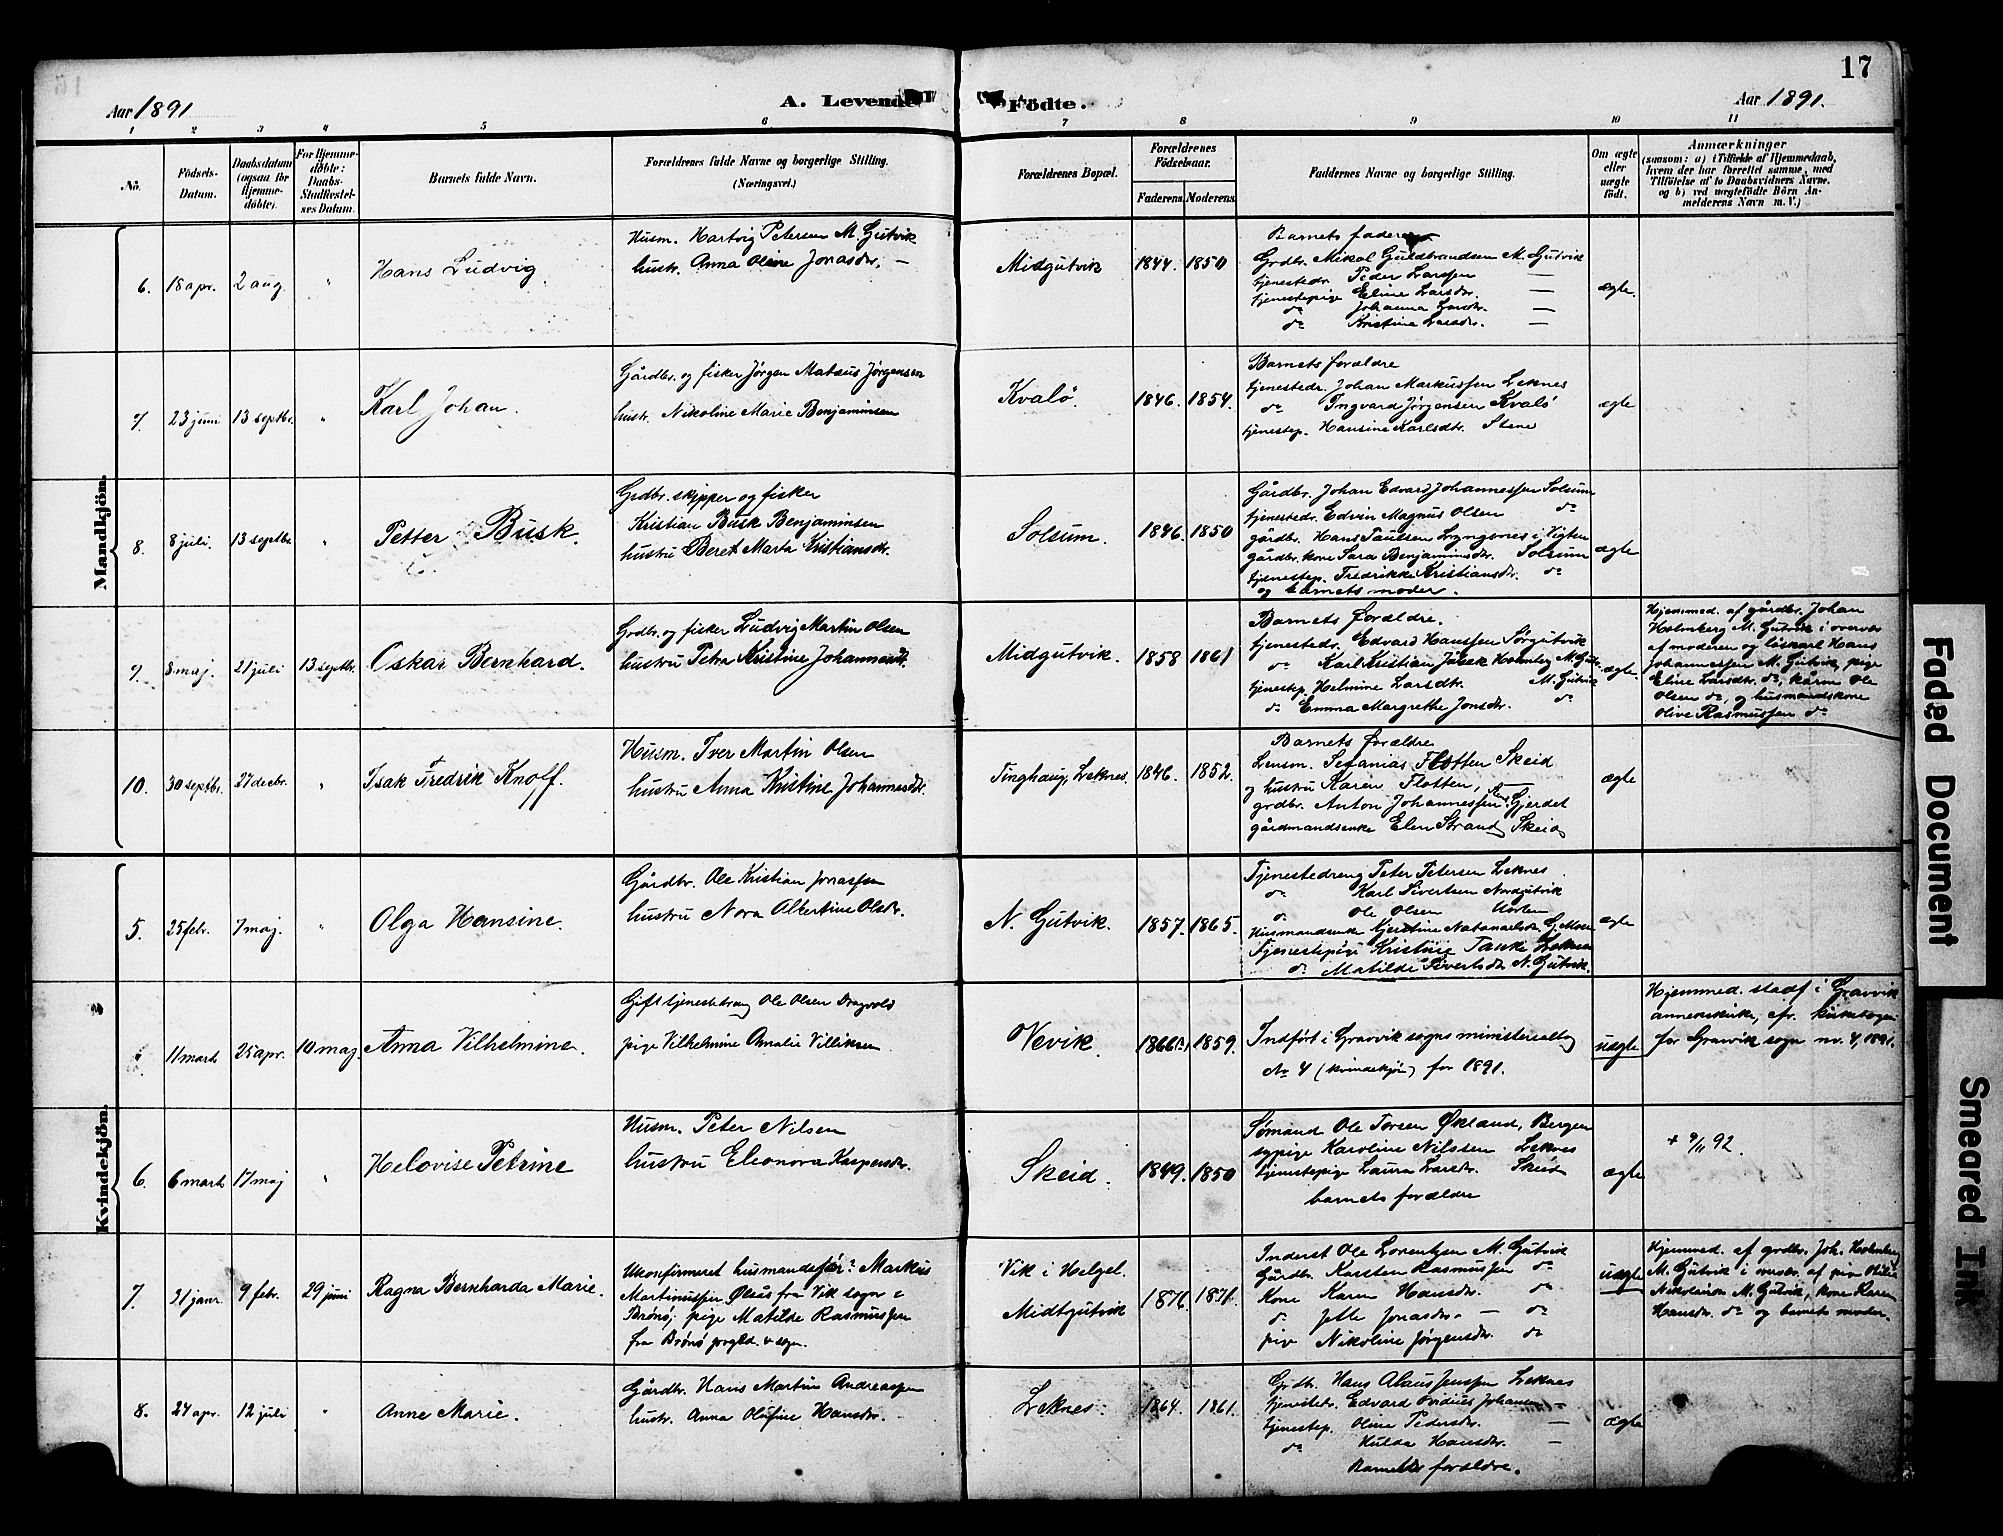 17
Aar 1891
A. Levende Födte.
Aar 1891.
1 2 3 4 5 6 7 8 9 10 11
No.
Födsels-
Datum.
Daabsdatum
(ogsaa for
Hjemme-
döbte).
For Hjemme-
döbte:
Daabs-
Stadfæstel-
ses Datum.
Barnets fulde Navn.
Forældrenes fulde Navne og borgerlige Stilling.
(Næringsvei.)
Forældrenes Bopæl.
Forældrenes
Födselsaar.
Faderens Moderens
Faddernes Navne og borgerlige Stilling.
Om ægte
eller
uægte
födt.
Anmærkninger
(saasom: a) i Tilfælde af Hjemmedaab,
hvem der har forrettet samme, med
Tilföielse af to Daabsvidners Navne,
og b) ved uægtefödte Börn An-
melderens Navn m. V.)
Mandkjön.
6. 18 apr. 2 aug. "
Hans Ludvig
Husm. Hartvig Petersen M. Gutvik
hustr. Anna Oline Jonasdr. —
Midgutvik
1844. 1850
Barnets fader
Grdbr. Mikal Guldbrandsen M. Gutvik
tjenestedr. Peder Larssen —
tjenestepige Eline Larsdr. —
do Johanna Larsdr. —
do Kristina Larsdr. —
ægte.
7. 23 juni 13 septbr. "
Karl Johan.
Gårdbr. og fisker Jørgen Matæus Jørgensen
hustr. Nikoline Marie Benjaminsen
Kvalø.
1846. 1854.
Barnets forældre
tjenestedr. Johan Markussen Leknes
do Ingvard Jørgensen Kvalø
tjenestep. Hansine Karlsdtr. Stene
ægte
8. 8 juli. 13 septbr. "
Petter Busk.
Grdbr. skipper og fisker
Kristian Busk Benjaminsen
hustru Beret Marta Kristiansdr.
Solsum.
1846. 1850
Gårdbr. Johan Edvard Johannessen Solsum
tjenestedr. Edvin Magnus Olsen do
gårdbr. Hans Paulsen Lyngsnes i Vigten
gårdbr. kone Sara Benjaminsdr. Solsum
tjenestep. Fredrikke Kristiansdr. do
og barnets moder.
ægte
9. 8 maj. 21 juli 13 septbr.
Oskar Bernhard.
Grdbr. og fisker Ludvig Martin Olsen
hustru Petra Kristine Johannesdr.
Midgutvik.
1858 1861
Barnets forældre.
tjenestedr. Edvard Hanssen Sørgutvik
do Karl Kristian Holmberg M. Gutv.
tjenestep. Helmine Larsdtr. M. Gutvik
do Emma Margrethe Jonsdr. do
ægte.
Hjemmed. af gårdbr. Johan
Holmberg M. Gutvik i overvær
af moderen og løskarl Hans
Johannessen M. Gutvik, pige
Eline Larsdtr. do, kårm. Ole
Olsen do, og husmandskone
Olive Rasmussen do
10. 30 septbr. 27 decbr. "
Isak Fredrik Knoff.
Husm. Iver Martin Olsen
hustru Anna Kristine Johannesdr.
Tinghaug, Leknes.
1846. 1852.
Barnets forældre
Lensm. Sefanias Flotten Skeid
og hustru Karen Flotten,
grdbr. Anton Johannessen Gjerdet
gårdmandsenke Elen Strand Skeid
ægte
Kvindekjön.
5. 25 febr. 7 maj. "
Olga Hansine.
Gårdbr. Ole Kristian Jonassen
hustru Nora Albertine Olsdr.
N. Gutvik.
1857. 1865.
Tjenestedreng Peter Petersen Leknes
do Karl Sivertsen Nordgutvik
do Ole Olsen Horten
Husmandsenke Natanaelsdr.
Tjenestepige Kristine Tanke Leknes
do Matilde Sivertsdr. N. Gutvik.
ægte
11 marts 25 apr. 10 maj.
Anna Vilhelmine.
Gift tjenestedreng Ole Olsen Dragvold
pige Vilhelmine Amalie Villiksen
Nevik.
1866(?) 1859.
Indført i Gravvik sogns ministerialbog
No 4 (kvindekjøn) for 1891.
uægte
Hjemmed. stadf. i Gravvik
annexkirke, cfr. kirkebogen
for Gravvik sogn nr. 4, 1891.
6. 6 marts 17 maj "
Helovise Petrine
Husm. Peter Nilsen
hustru Eleonora Kaspersdr.
Skeid.
1849. 1850
Sømand Ole Torsen Økland, Bergen
sypige Karoline Nilssen Leknes
tjenestepige Laura Larsdr. Skeid
barnets forældre
ægte
+ 9/11 92.
7. 31 janr. 9 febr. 29 juni
Ragna Bernharda Marie.
Ukonfirmeret husmandssøn? Markus
Martinussen Ølaus fra Vik sogn i
Brønø; pige Matilde Rasmussen
fra Brønø prgld. & sogn.
Vik i Helgel.
Midtgutvik
1871. 1871.
Inderst Ole Lorentzen M. Gutvik
Gårdbr. Karsten Rasmussen do
Kone Karen Hansdr. do
do Jette Jonasdr. — do
pige Nikoline Jørgensdr. do
uægte
Hjemmed. af grdbr. Joh. Holmberg
M. Gutvik i nærv. af pige Otilie
Nikolaisen M. Gutvik, kone Karen
Hansdr. do og barnets moder.
8. 24 apr. 12 juli "
Anne Marie.
Gårdbr. Hans Martin Andreassen
hustr. Anna Olufine Hansdr.
Leknes.
1864. 1861.
Grdbr. Hans Olaus Jenssen Leknes
tjenestedr. Edvard Ovidius Johansen —
tjenestep. Oline Pedersdr. —
do Hulda Hansdr. —
Barnets forældre.
ægte
Faded Document
Smeared Ink